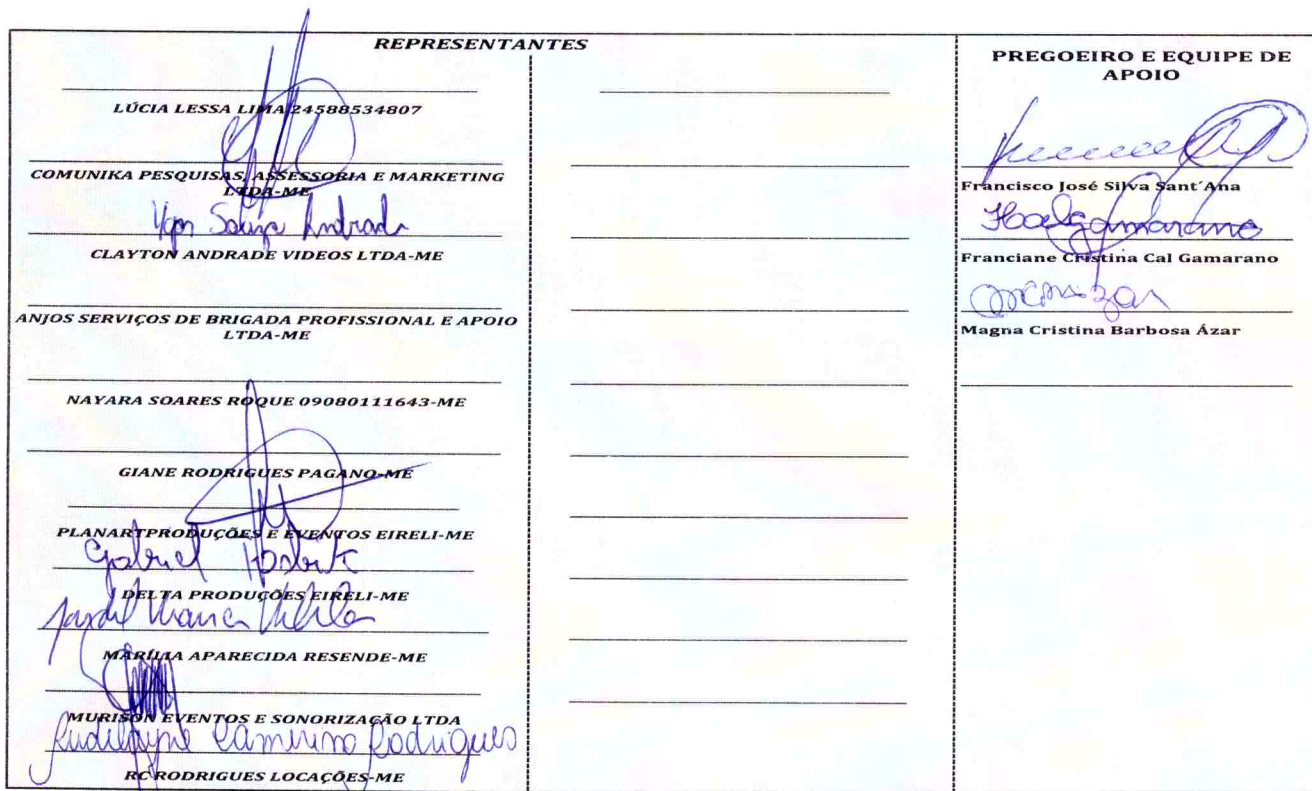 REPRESENTANTES
LÚCIA LESSA LIMA 24588534807
COMUNIKA PESQUISAS, ASSESSORIA E MARKETING
LTDA-ME
Souza Andrade
CLAYTON ANDRADE VIDEOS LTDA-ME
ANJOS SERVIÇOS DE BRIGADA PROFISSIONAL E APOIO
LTDA-ME
NAYARA SOARES ROQUE 09080111643-ME
GIANE RODRIGUES PAGANO-ME
PLANARTPRODUÇÕES E EVENTOS EIRELI-ME
Gabriel
DELTA PRODUÇÕES EIRELI-ME
MARÍLIA APARECIDA RESENDE-ME
MURISON EVENTOS E SONORIZAÇÃO LTDA
Rodrigues
RC RODRIGUES LOCAÇÕES-ME
PREGOEIRO E EQUIPE DE
APOIO
Francisco José Silva Sant´Ana
Franciane Cristina Cal Gamarano
Magna Cristina Barbosa Ázar